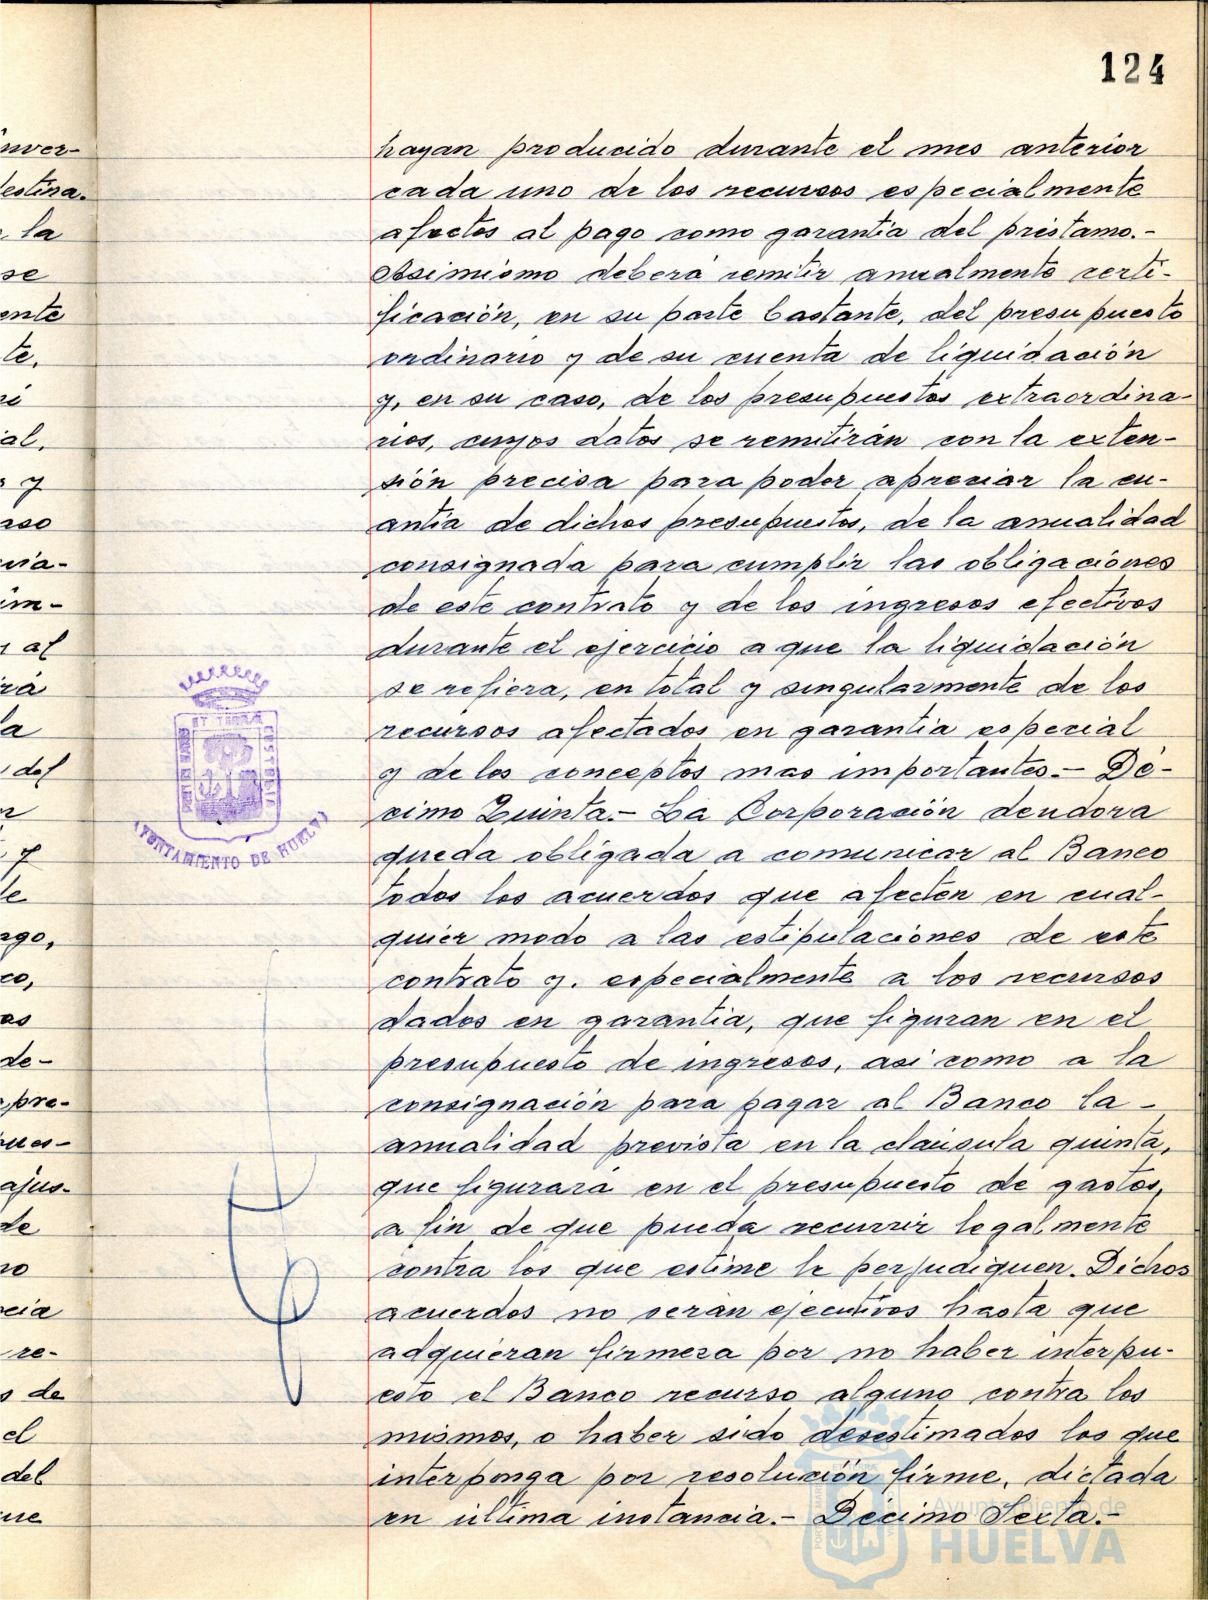 124
hayan producido durante el mes anterior
cada uno de los recursos especialmente
afectos al pago como garantía del préstamo.-
Asimismo deberá remitir anualmente certi-
ficación, en su parte bastante, del presupuesto
ordinario y de su cuenta de liquidación
y, en su caso, de los presupuestos extraordina-
rios, cuyos datos se remitirán con la exten-
sión precisa para poder apreciar la cu-
antía de dichos presupuestos, de la anualidad
consignada para cumplir las obligaciones
de este contrato y de los ingresos efectivos
durante el ejercicio a que la liquidación
se refiera, en total y singularmente de los
recursos afectados en garantía especial
y de los conceptos mas importantes.- Dé-
cimo Quinta.- La Corporación deudora
queda obligada a comunicar al Banco
todos los acuerdos que afecten en cual-
quier modo a las estipulaciones de este
contrato y. especialmente a los recursos
dados en garantía, que figuran en el
presupuesto de ingresos, asi como a la
consignación para pagar al Banco la -
anualidad prevista en la claúsula quinta,
que figurará en el presupuesto de gastos,
a fin de que pueda recurrir legalmente
contra los que estime le perjudiquen. Dichos
acuerdos no serán ejecutivos hasta que
adquieran firmeza por no haber interpu-
esto el Banco recurso alguno contra los
mismos, o haber sido desestimados los que
interponga por resolución firme, dictada
en última instancia.- Décimo Sexta.-
inver-
destina.
la
se
ente
te,
al,
y
im-
al
la
del
y
le
ago,
co,
as
de-
pre-
pues-
ajus-
de
cia
re-
s de
el
del
que
AYUNTAMIENTO DE HUELVA
Ayuntamiento de
HUELVA